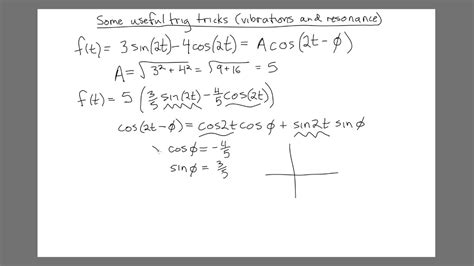 Some useful trig tricks (vibrations and resonance)
f(t) = 3 sin(2t) - 4 cos(2t) = A cos(2t - ϕ)
A = √(3² + 4²) = √(9 + 16) = 5
f(t) = 5 (3/5 sin(2t) - 4/5 cos(2t))
cos(2t - ϕ) = cos2t cos ϕ + sin2t sin ϕ
cos ϕ = -4/5
sin ϕ = 3/5